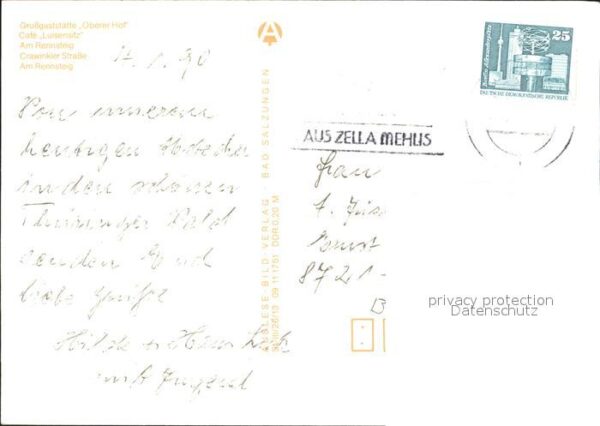 Großgaststätte „Oberer Hof"
Café „Luisensitz"
Am Rennsteig
Crawinkler Straße
Am Rennsteig
Von unserem
heutigen
in den schönen
Thüringer Wald
senden Euch
liebe Grüße
Hilde u. Hans
mit Ingrid
AUSLESE-BILD-VERLAG · BAD SALZUNGEN
09 11 1751 DDR 0,20 M
25
Berlin, Alexanderplatz
DEUTSCHE DEMOKRATISCHE REPUBLIK
AUS ZELLA MEHLIS
Frau
Ernst
8721
privacy protection
Datenschutz